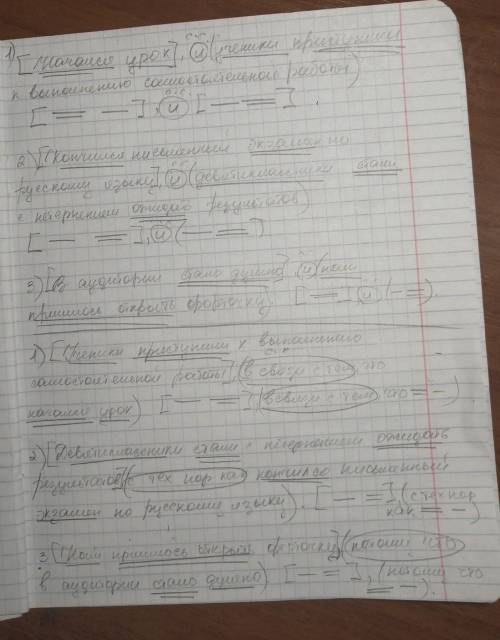 1) [Начался урок], и (ученики приступили
к выполнению самостоятельной работы)
[═ —], и [— ═].
2) [Кончился письменный экзамен по
русскому языку], и (девятиклассники стали
с нетерпением ожидать результатов)
[— ═], и (— ═)
3) [В аудитории стало душно], (и) нам
пришлось открыть форточку. [— ═], и (— ═).
1) [Ученики приступили к выполнению
самостоятельной работы], (в связи с тем, что
начался урок) [— ═], (в связи с тем, что ═ —)
2) [Девятиклассники стали с нетерпением ожидать
результатов], (с тех пор как кончился письменный
экзамен по русскому языку). [— ═], (с тех пор
как ═ —)
3 [Нам пришлось открыть форточку], (потому что
в аудитории стало душно) [— ═], (потому что
═ —).